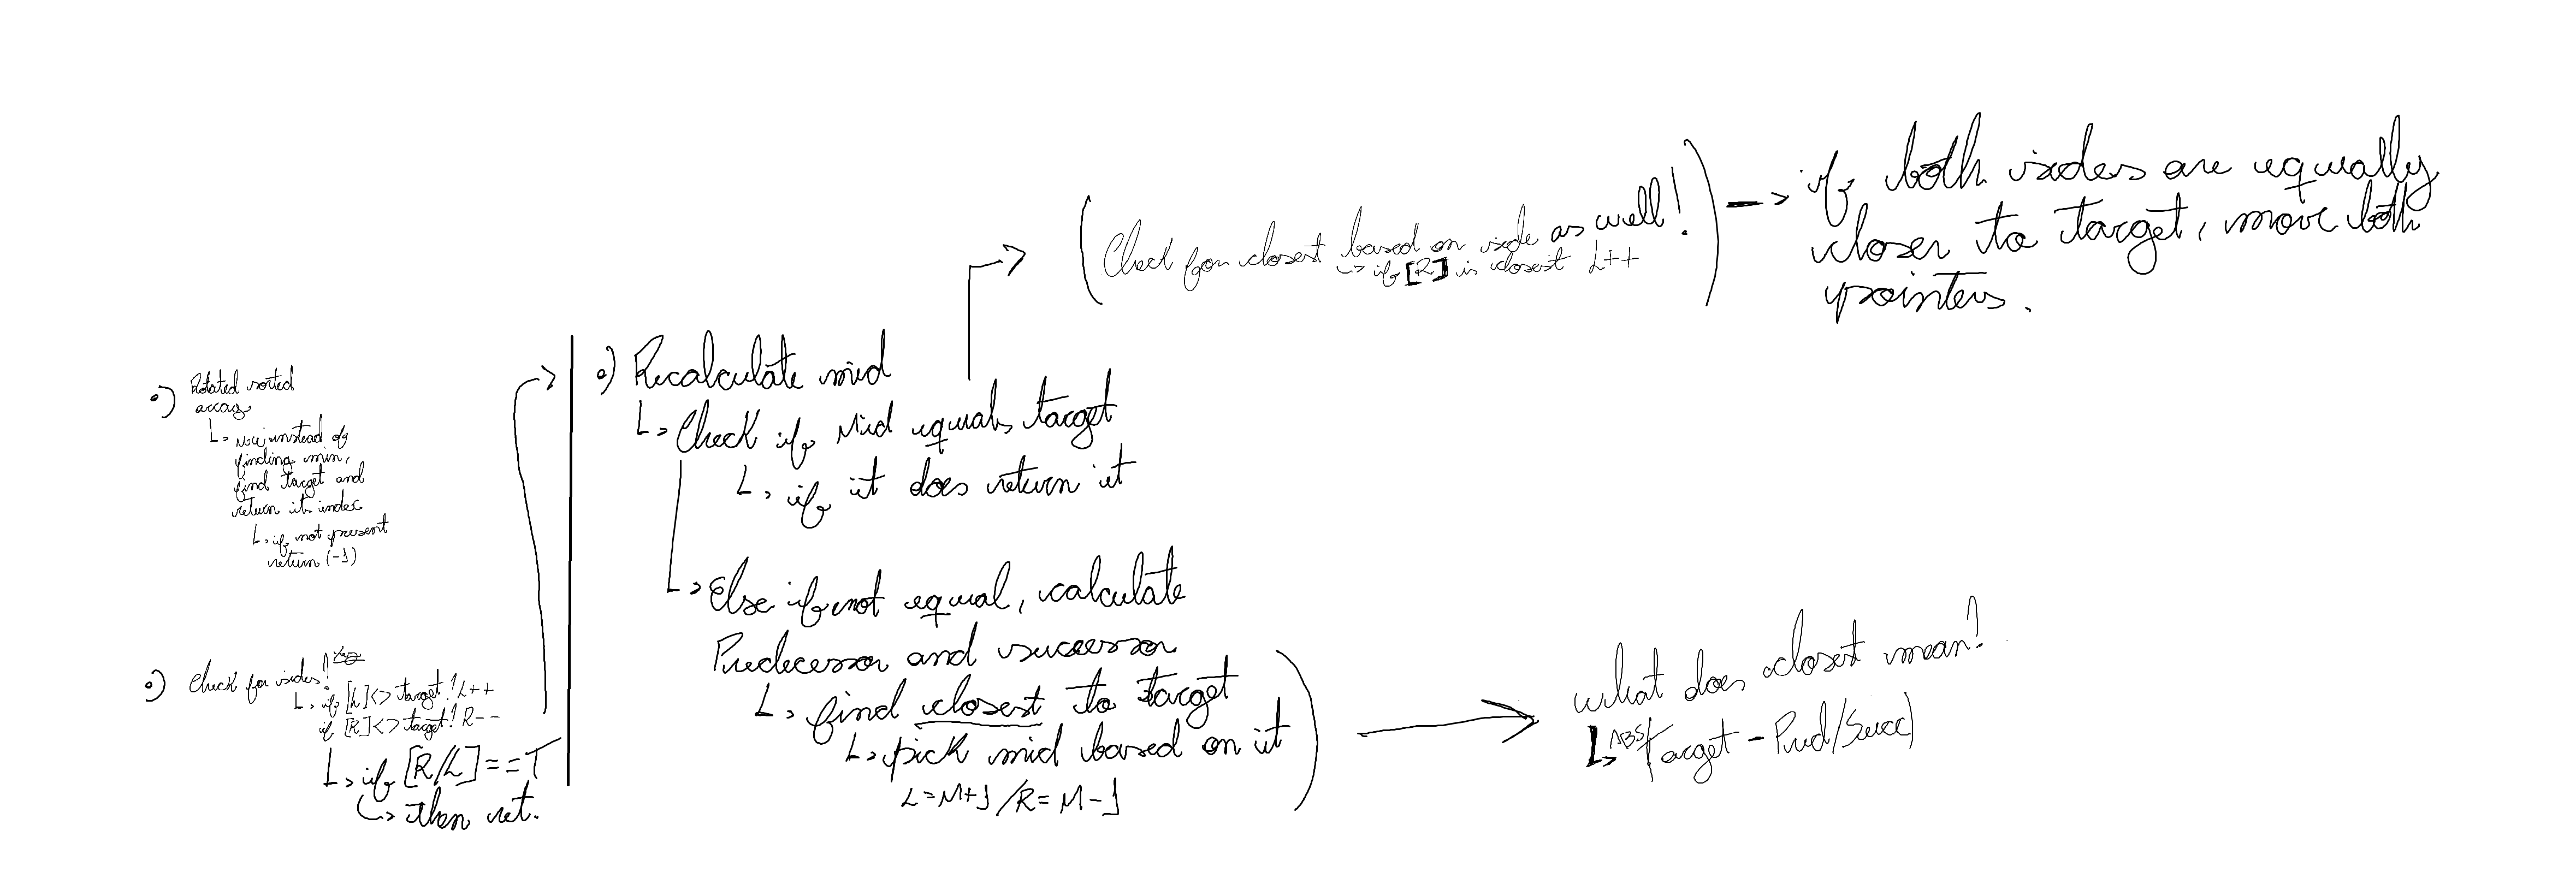 •) Rotated sorted
array
↳ Now instead of
finding min,
find target and
return its index
↳ if not present
return (-1)
•) Check for sides!
↳ if [L] <> target! L++
if [R] <> target! R--
↳ if [R/L] == T
↳ then ret.
•) Recalculate mid
↳ Check if Mid equals target
↳ if it does return it
↳ Else if not equal, calculate
Predecessor and successor
↳ find closest to target
↳ pick mid based on it
L = M+1 / R = M-1
(Check for closest based on side as well!)
↳ if [R] is closest L++
→ if both sides are equally
closer to target, move both
pointers.
What does closest mean?
↳ ABS(Target - Pred/Succ)